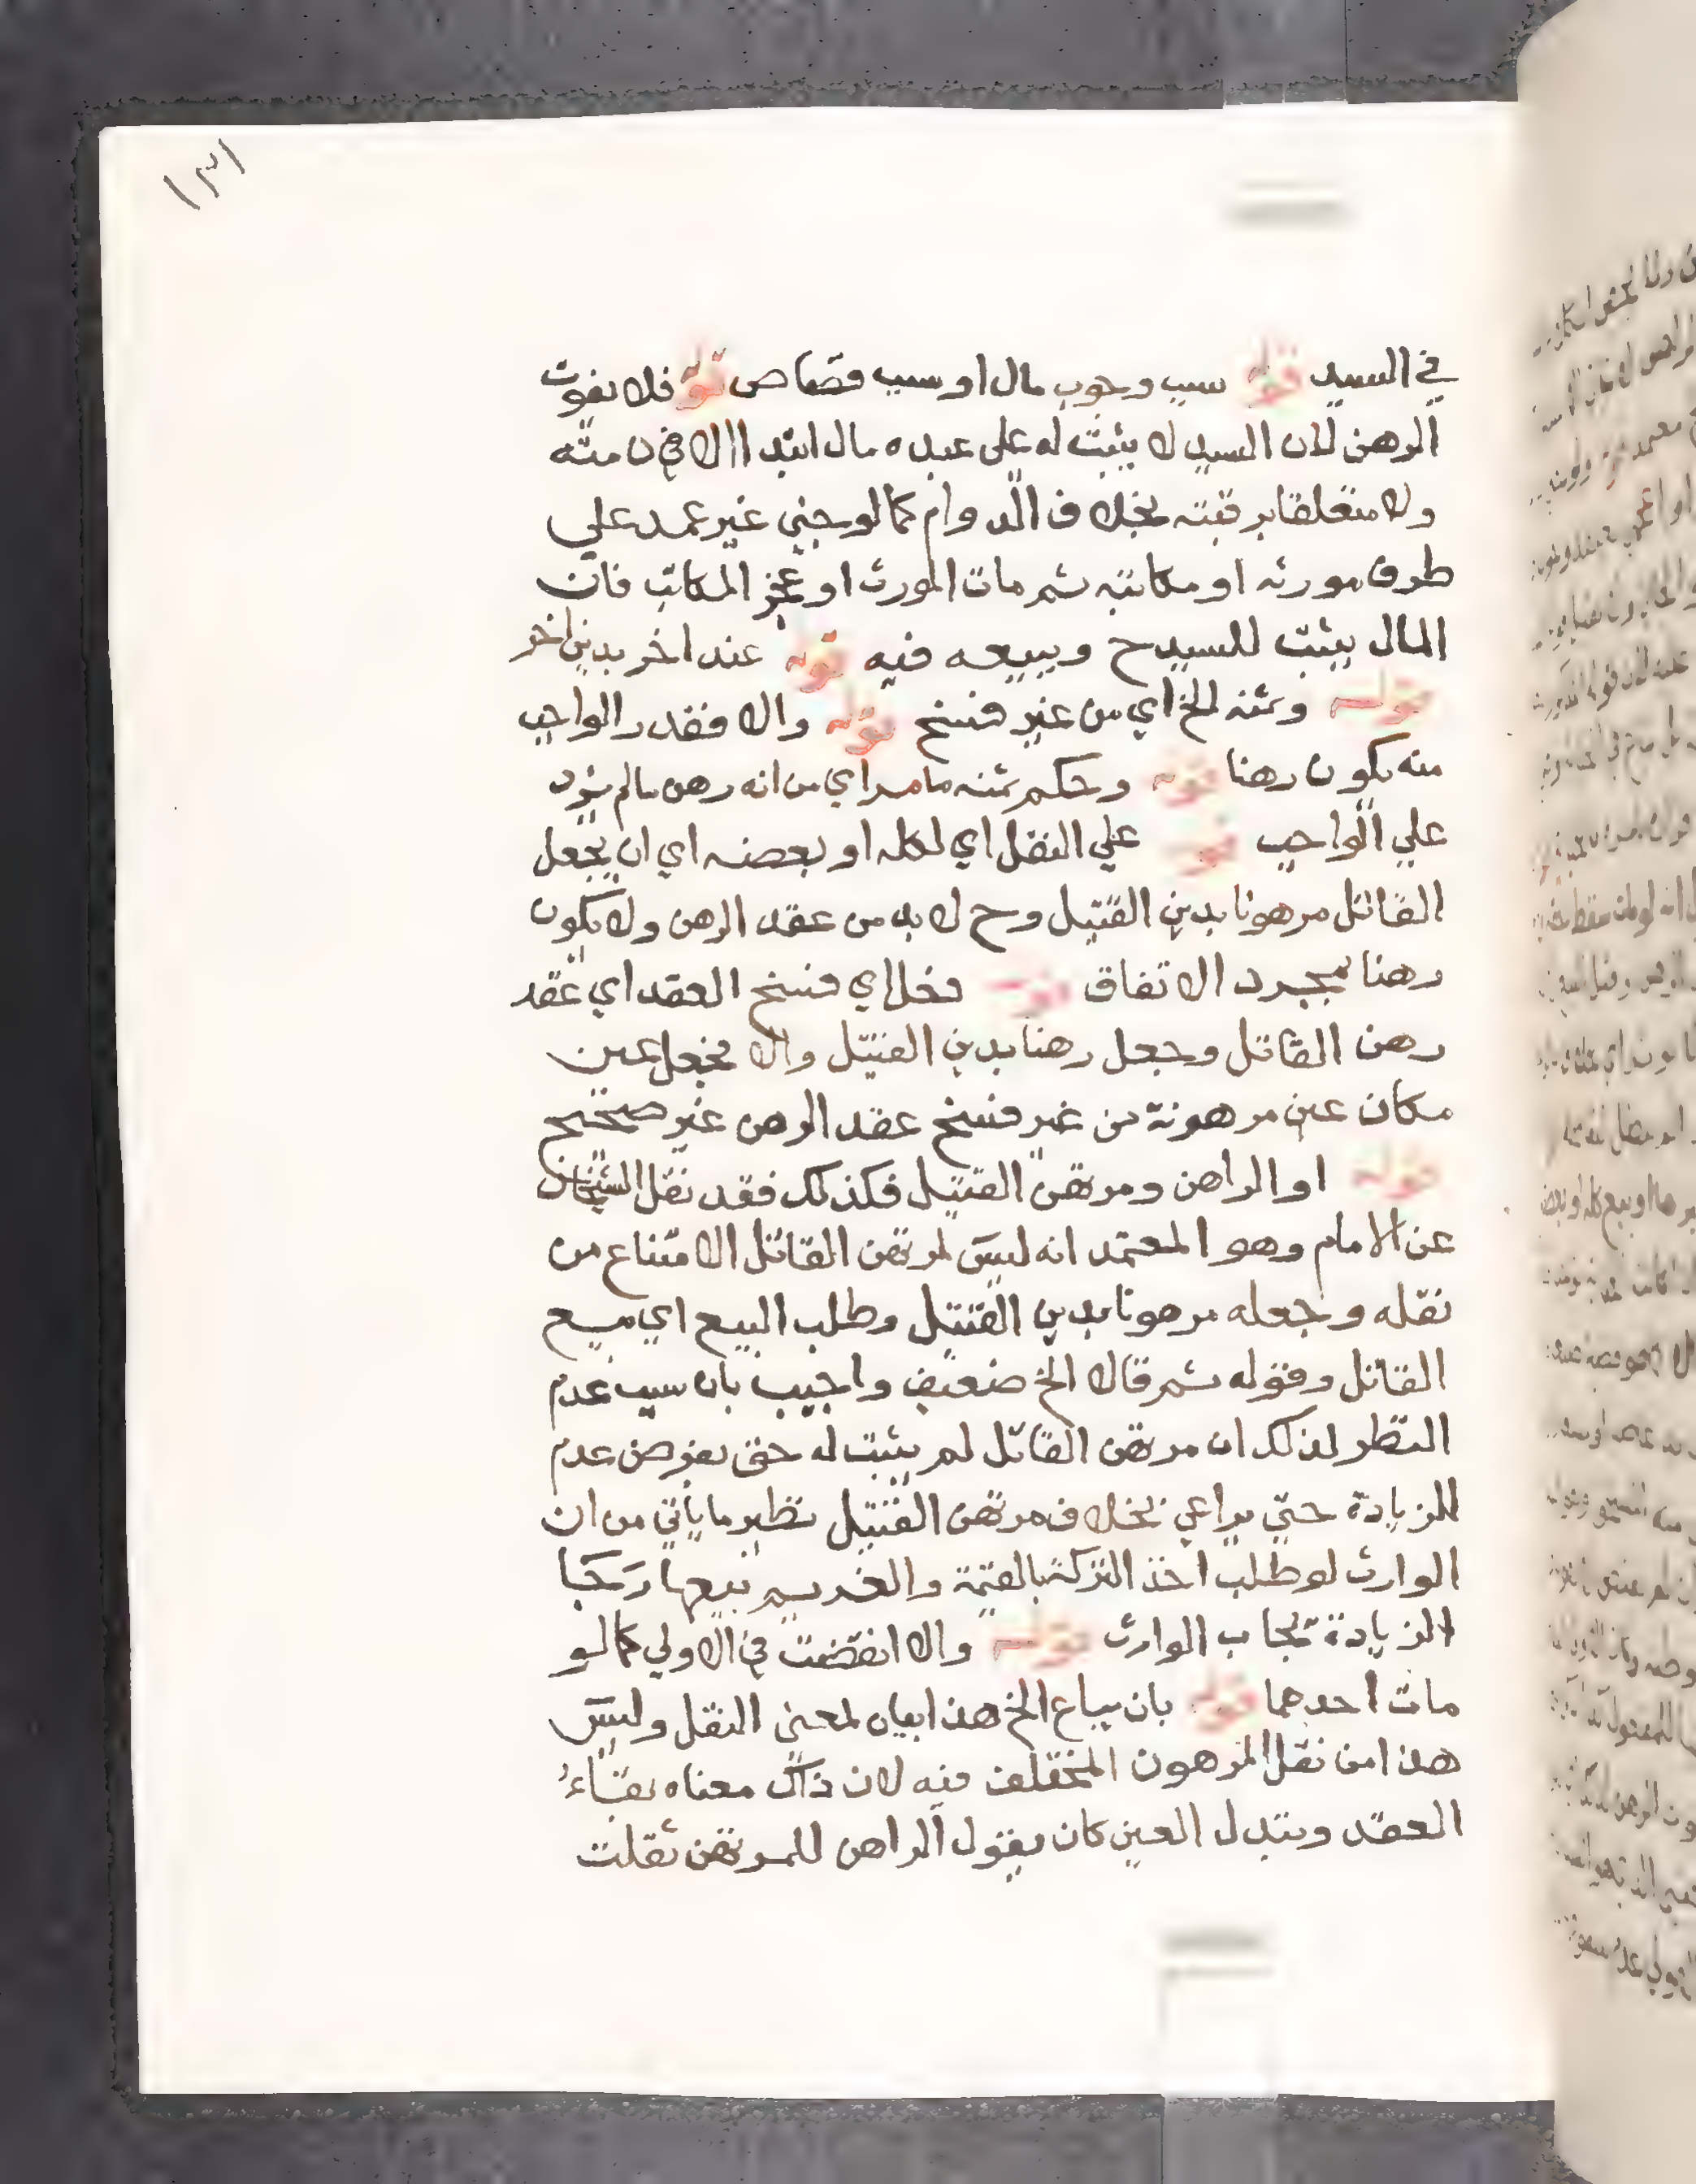 ١٣١
في السيد قوله سبب وجوب مال او سبب قصاص قوله فلا يفوت
الرهن لان السيد لا يثبت له على عبده مال ابتدا لا في ذمته
ولا متعلقا برقبته بخلاف الدوام كما لو جني غير عمد علي
طرف مورثه او مكاتبه ثم مات المورث او عجز المكاتب فان
المال يثبت للسيد ح ويبيعه فيه قوله عند اخر بدين اخر
قوله وثمنه الخ اي من غير فسخ قوله والا فقدر الواجب
منه يكون رهنا قوله وحكم ثمنه ما مر اي من انه رهن ما لم يزد
علي الواجب قوله علي النقل اي لكله او بعضه اي ان يجعل
القاتل مرهونا بدين القتيل وح لا بد من عقد الرهن ولا يكون
رهنا بمجرد الاتفاق قوله فعلا اي فسخ العقد اي عقد
رهن القاتل وجعل رهنا بدين القتيل والا فجعل عين
مكان عين مرهونة من غير فسخ عقد الرهن غير صحيح
قوله او الراهن ومرتهن القتيل فكذلك فقد نقل الشيخان
عن الامام وهو المعتمد انه ليس لمرتهن القاتل الامتناع من
نقله وجعله مرهونا بدين القتيل وطلب البيع اي مبيع
القاتل وقوله ثم قالا الخ ضعيف واجيب بان سبب عدم
النظر لذلك ان مرتهن القاتل لم يثبت له حق بفرض عدم
للزيادة حتي يراعي بخلاف مرتهن القتيل نظير ما ياتي من ان
الوارث لو طلب اخذ التركة بالقيمة والغريم بيعها رجا
الزيادة يجاب الوارث قوله والا انفضت في الاولي كما لو
مات احدهما قوله بان يباع الخ هذا بيان لمعني النقل وليس
هذا من نقل المرهون المختلف فيه لان ذاك معناه بقاء
العقد وتبدل العين كان يقول الراهن للمرتهن نقلت